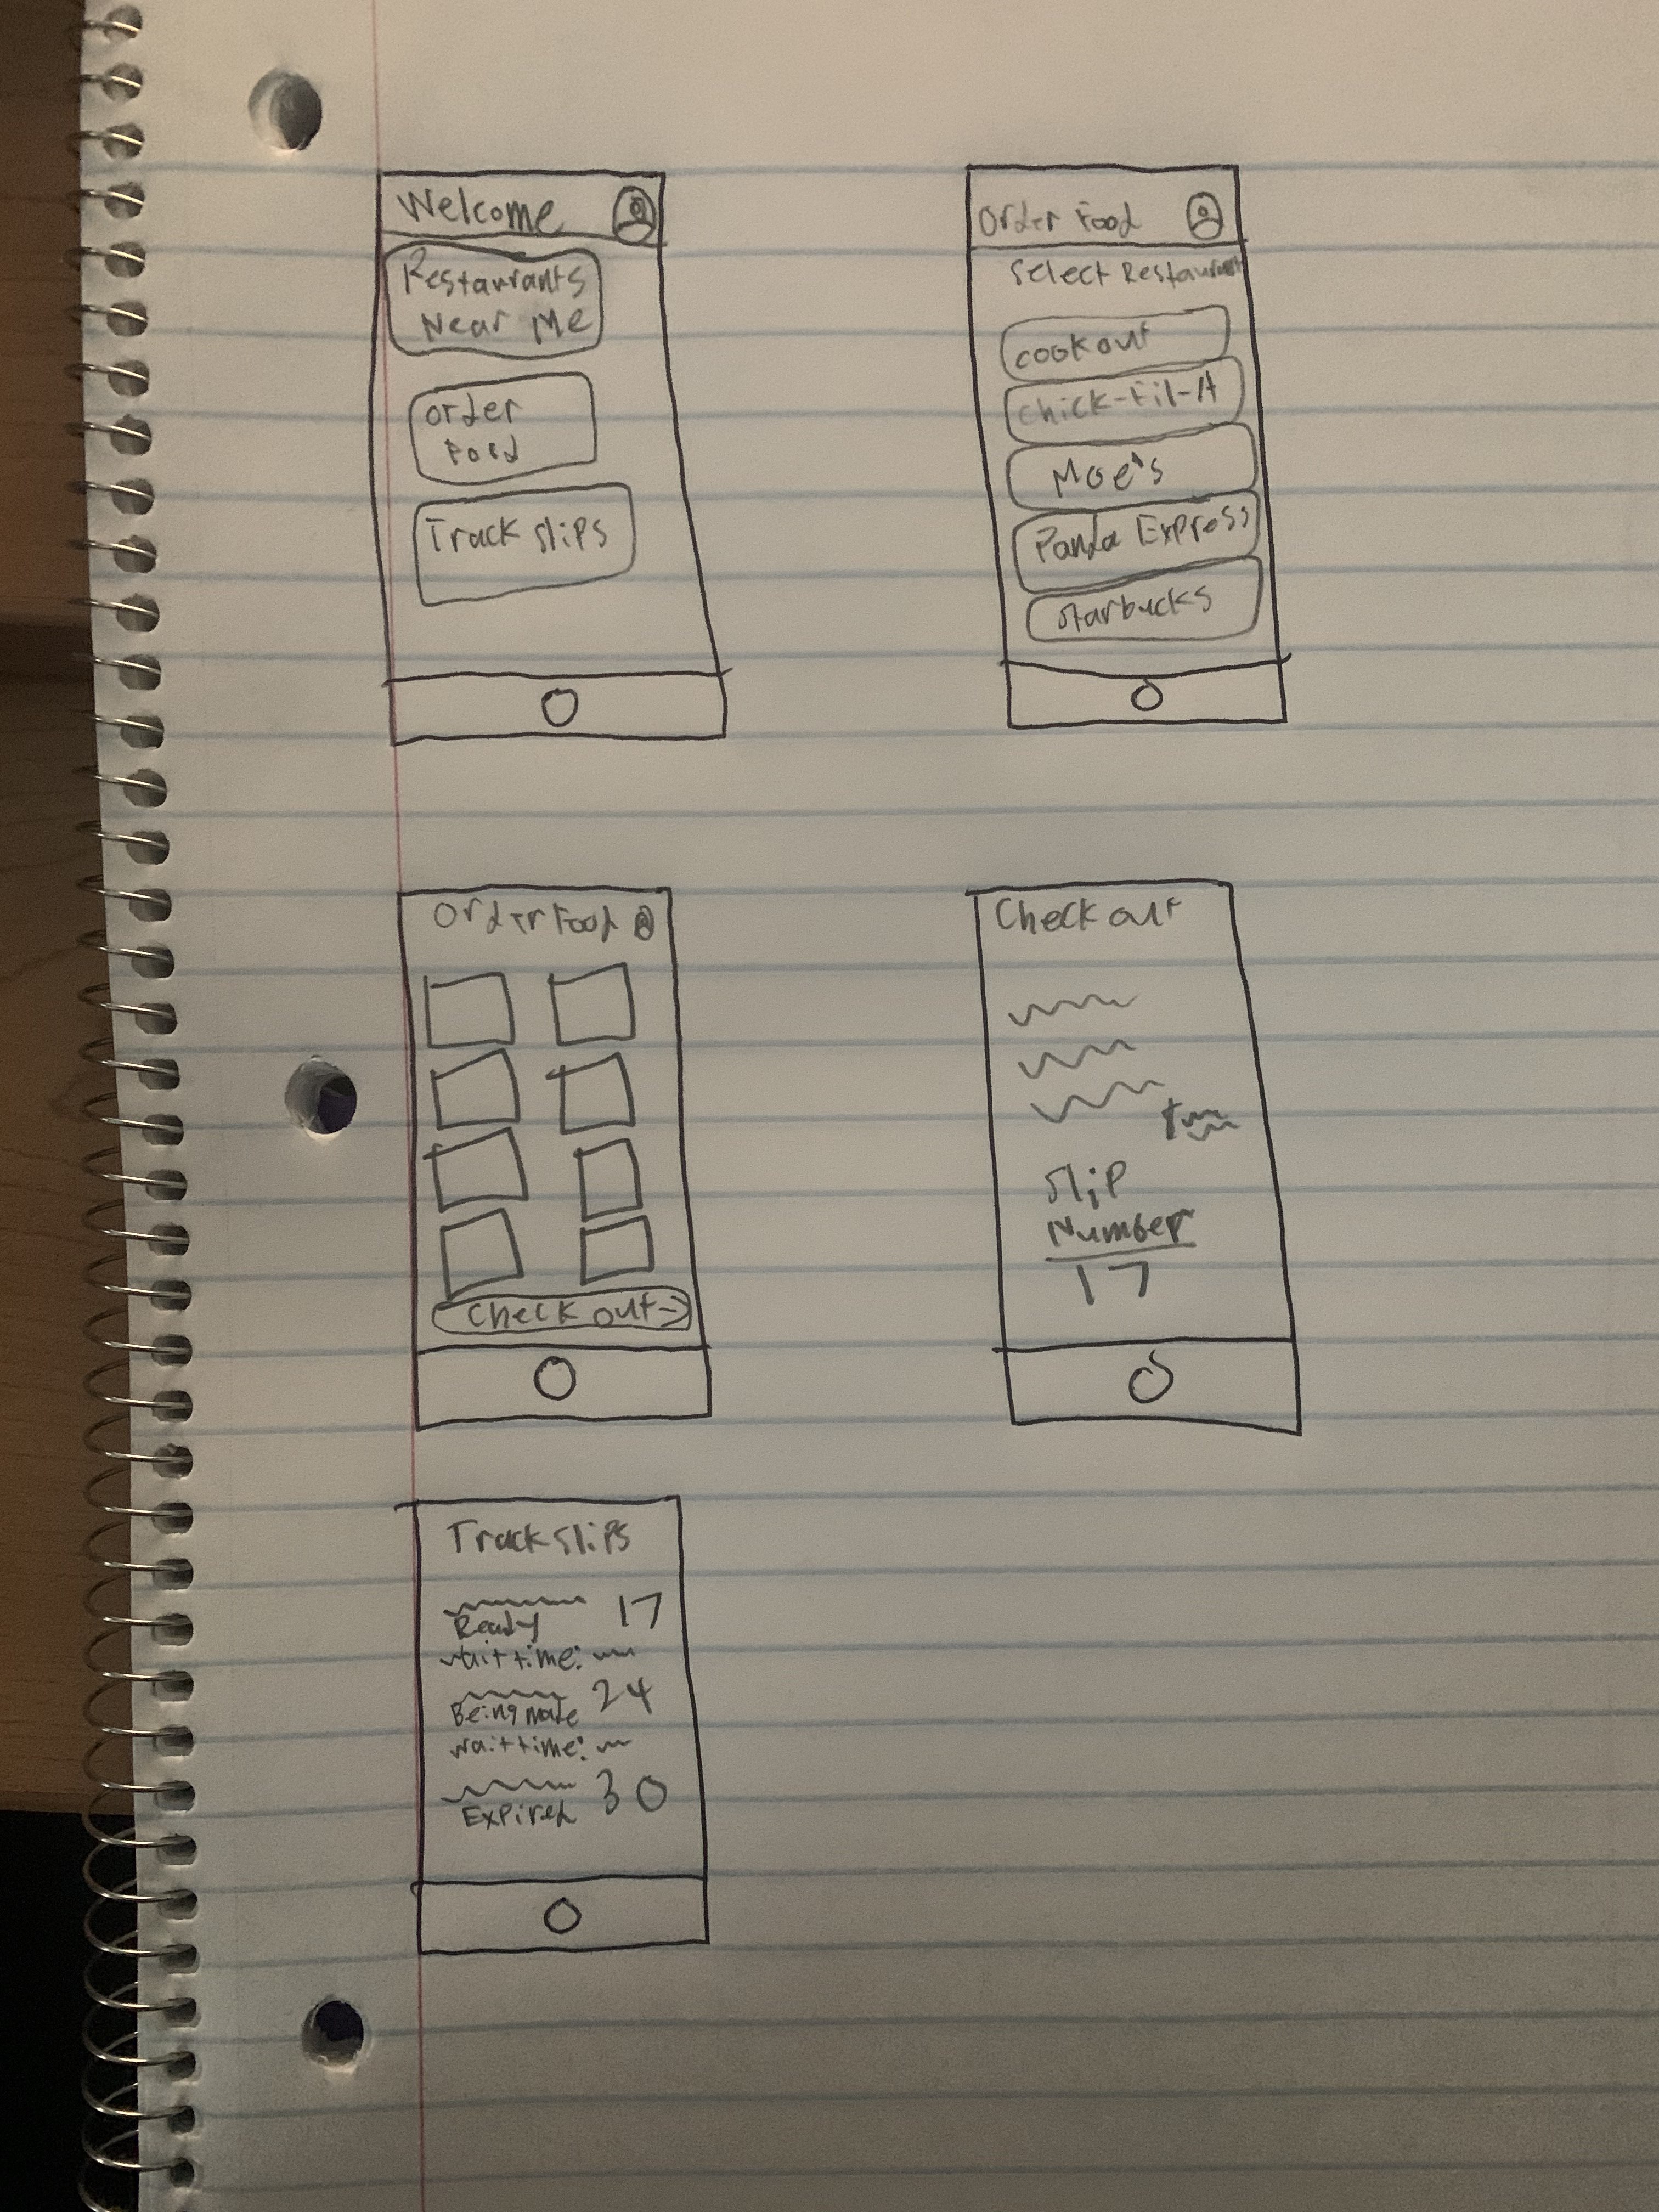 Welcome
Restaurants
Near Me
order
Food
Track slips
Order Food
Select Restaurant
cookout
chick-fil-A
Moe's
Panda Express
starbucks
Order Food
Check out →
Check out
Slip
Number
17
Track slips
Ready 17
wait time:
Being made 24
wait time:
Expired 30